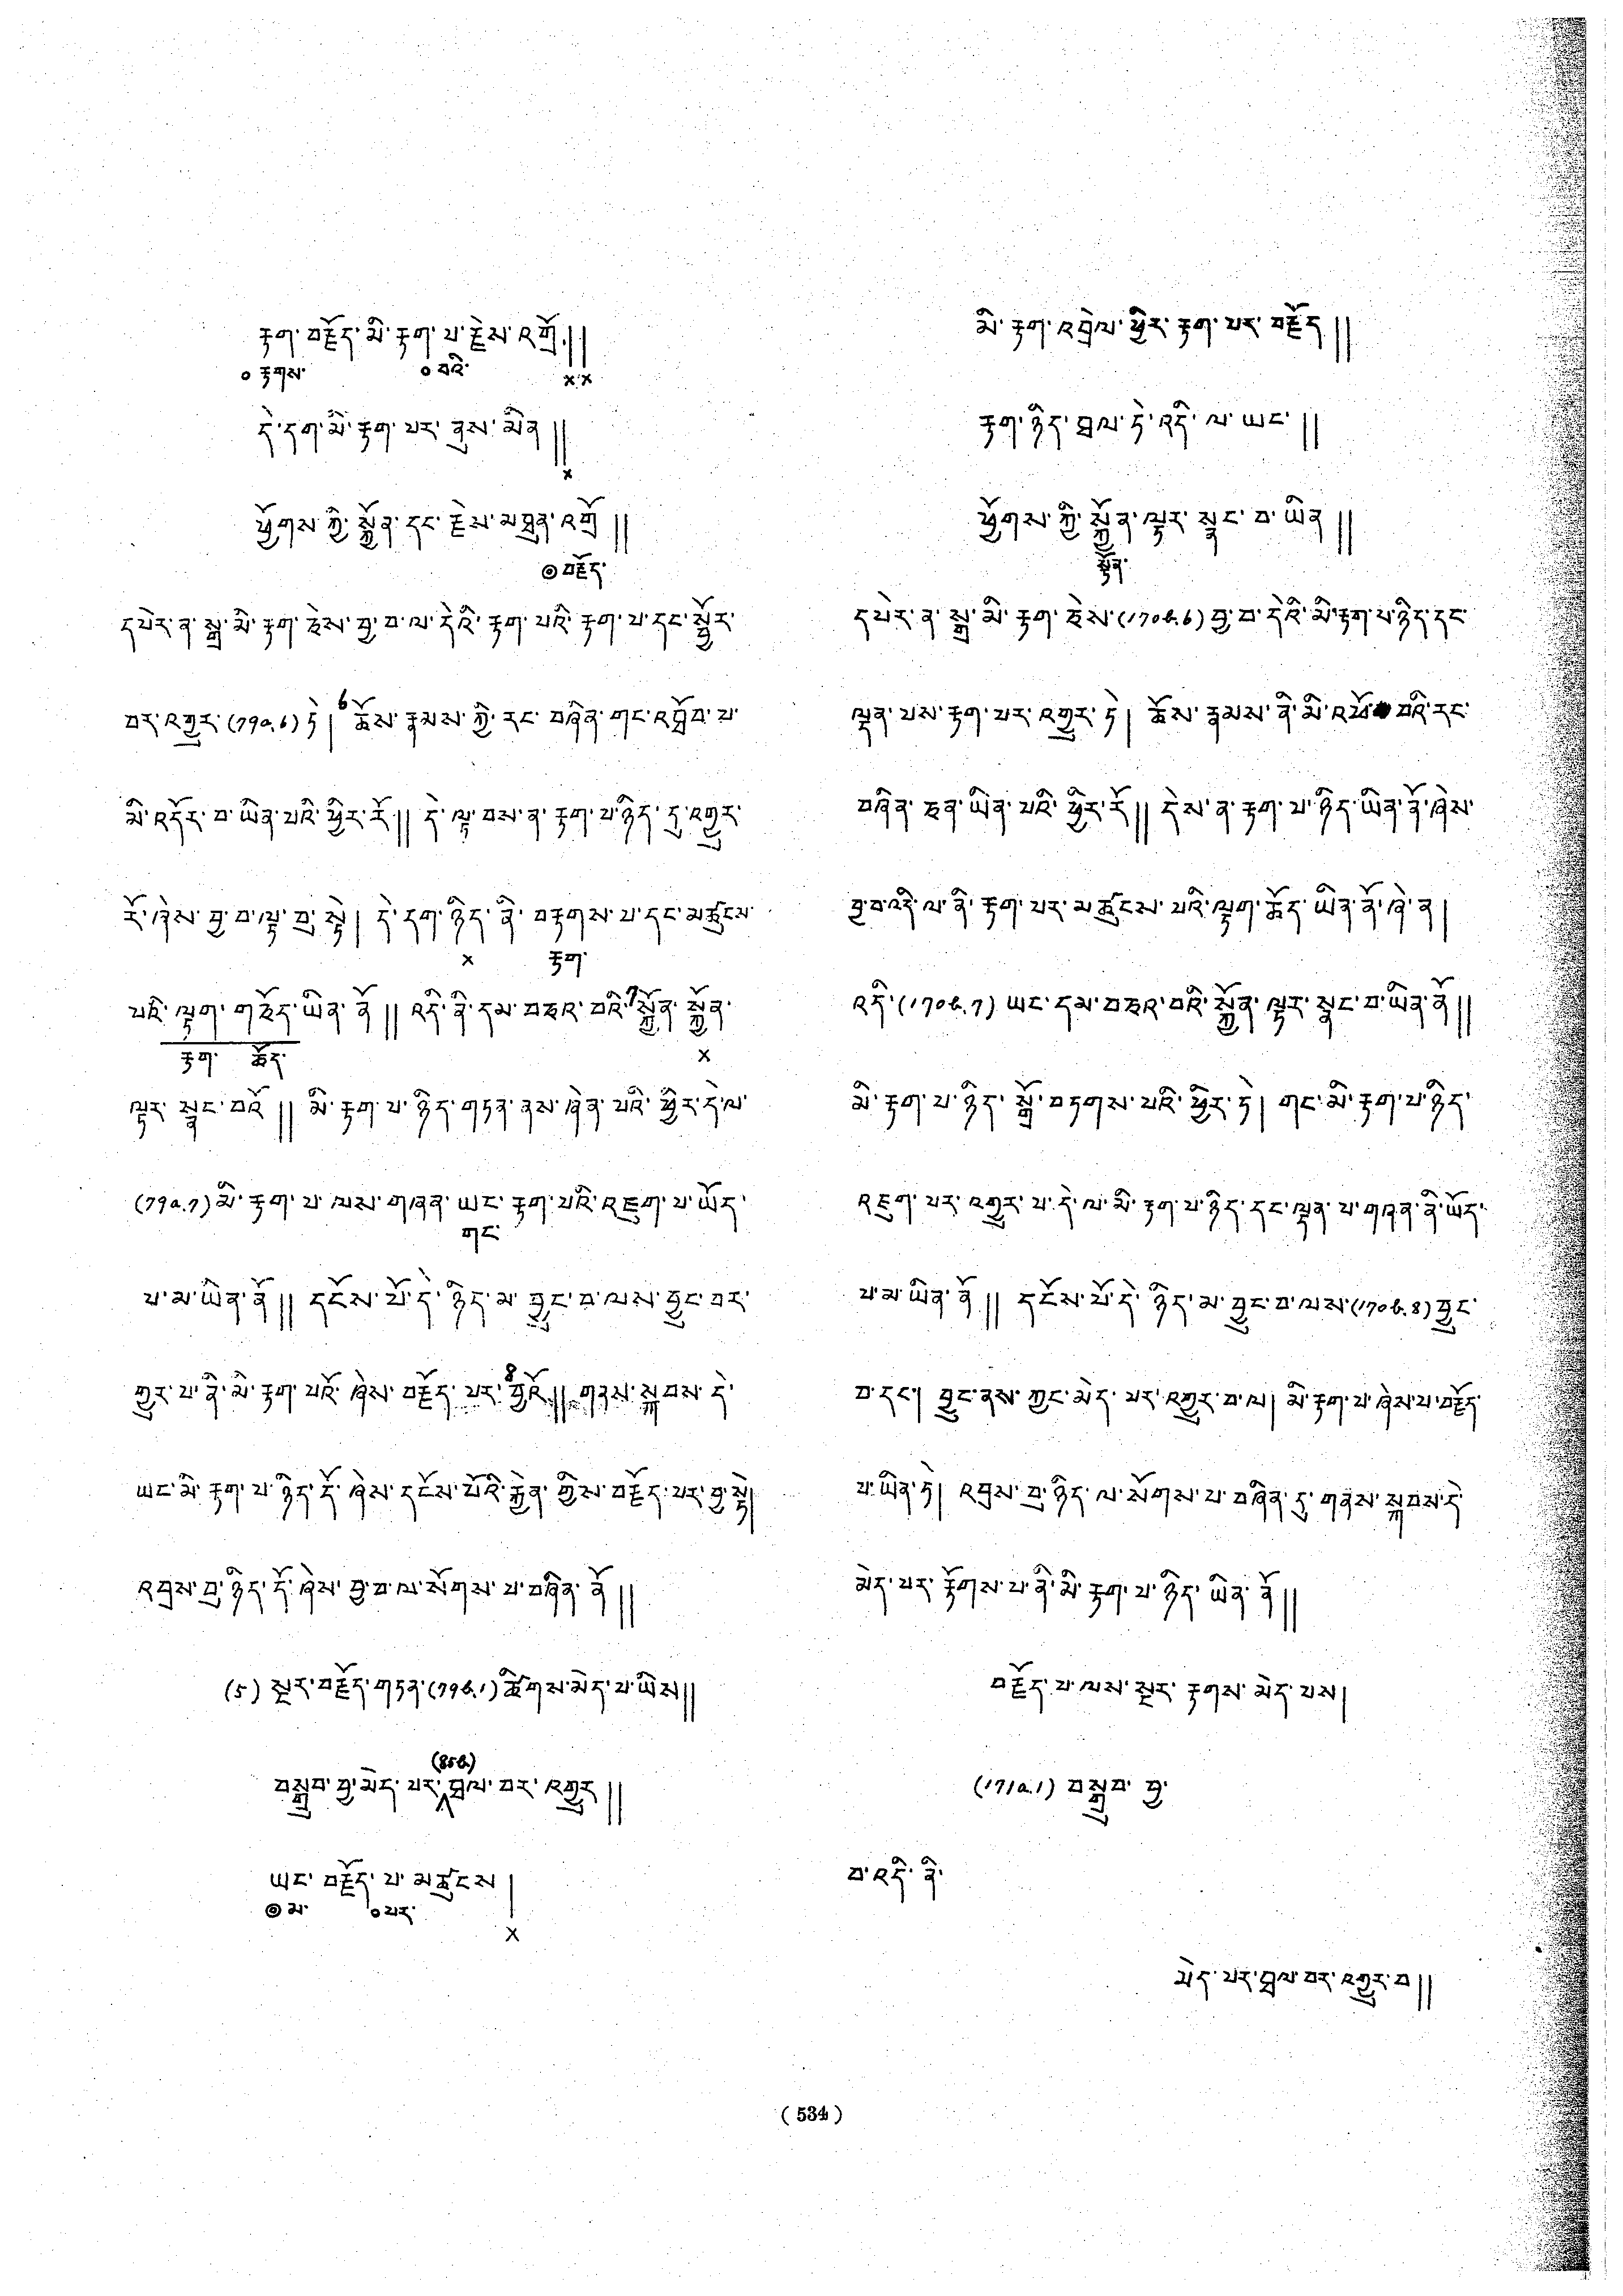 རྟག་བརྗོད་མི་རྟག་པ་རྗེས་འགྲོ།།
༠རྟགས་ ༠བའི་ ××
དེ་དག་མི་རྟག་པར་ནུས་མིན།།
×
ཕྱོགས་ཀྱི་སྐྱོན་དང་རྗེས་མཐུན་འགྲོ།།
◎བརྗོད་
དཔེར་ན་སྒྲ་མི་རྟག་ཅེས་བྱ་བ་ལ་དེའི་རྟག་པའི་རྟག་པ་དང་སྦྱོར་
བར་འགྱུར་(79a.6)ཏེ།6ཆོས་རྣམས་ཀྱི་རང་བཞིན་གང་འཐོབ་པ་
མི་འདོར་བ་ཡིན་པའི་ཕྱིར་རོ།། དེ་ལྟ་བས་ན་རྟག་པ་ཉིད་དུ་འགྱུར་
རོ་ཞེས་བྱ་བ་ལྟ་བུ་སྟེ། དེ་དག་ཉིད་ནི་བརྟགས་པ་དང་མཚུངས་
× རྟག་
པའི་ལྟག་གཅོད་ཡིན་ནོ།། འདི་ནི་དམ་བཅའ་བའི་7སྐྱོན་སྐྱོན་
རྟག་ ཆོད་ ×
ལྟར་སྣང་བའོ།། མི་རྟག་པ་ཉིད་གཏན་ནས་ཞེན་པའི་ཕྱིར་དེ་ལ་
(79a.7)མི་རྟག་པ་ལས་གཞན་ཡང་རྟག་པའི་འཇུག་པ་ཡོད་
གང་
པ་མ་ཡིན་ནོ།། དངོས་པོ་དེ་ཉིད་མ་བྱུང་བ་ལས་བྱུང་བར་
གྱུར་པ་ནི་མི་རྟག་པའོ་ཞེས་བརྗོད་པར་8བྱའོ།། གནས་སྐབས་དེ་
ཡང་མི་རྟག་པ་ཉིད་དོ་ཞེས་དངོས་པོའི་རྐྱེན་གྱིས་བརྗོད་པར་བྱ་སྟེ།
འབྲས་བུ་ཉིད་དོ་ཞེས་བྱ་བ་ལ་སོགས་པ་བཞིན་ནོ།།
(5) སྔར་བརྗོད་གཏན་(79b.1)ཚིགས་མེད་པ་ཡིས།།
(85b)
བསྒྲུབ་བྱ་མེད་པར་བྲལ་བར་འགྱུར།།
ཡང་བརྗོད་པ་མཚུངས།
◎མ་ ༠པར་ ×
མི་རྟག་འབྲེལ་ཕྱིར་རྟག་པར་བརྗོད།།
རྟག་ཉིད་བྲལ་ཏེ་འདི་ལ་ཡང་།།
ཕྱོགས་ཀྱི་སྐྱོན་ལྟར་སྣང་བ་ཡིན།།
སྟོན་
དཔེར་ན་སྒྲ་མི་རྟག་ཅེས་(170b.6)བྱ་བ་དེའི་མི་རྟག་པ་ཉིད་དང་
ལྡན་པས་རྟག་པར་འགྱུར་ཏེ། ཆོས་རྣམས་ནི་མི་འཕོ་བའི་རང་
བཞིན་ཅན་ཡིན་པའི་ཕྱིར་རོ།། དེས་ན་རྟག་པ་ཉིད་ཡིན་ནོ་ཞེས་
བྱ་བ་འདི་ལ་ནི་རྟག་པར་མཚུངས་པའི་ལྟག་ཆོད་ཡིན་ནོ་ཞེ་ན།
འདི་(170b.7)ཡང་དམ་བཅའ་བའི་སྐྱོན་ལྟར་སྣང་བ་ཡིན་ནོ།།
མི་རྟག་པ་ཉིད་སྒྲོ་བཏགས་པའི་ཕྱིར་ཏེ། གང་མི་རྟག་པ་ཉིད་
འཇུག་པར་འགྱུར་པ་དེ་ལ་མི་རྟག་པ་ཉིད་དང་ལྡན་པ་གཞན་ནི་ཡོད་
པ་མ་ཡིན་ནོ།། དངོས་པོ་དེ་ཉིད་མ་བྱུང་བ་ལས་(170b.8)བྱུང་
བ་དང་། བྱུང་ནས་ཀྱང་མེད་པར་འགྱུར་བ་ལ། མི་རྟག་པ་ཞེས་པ་བརྗོད་
པ་ཡིན་ཏེ། འབྲས་བུ་ཉིད་ལ་སོགས་པ་བཞིན་དུ་གནས་སྐབས་དེ་
མེད་པར་རྟོགས་པ་ནི་མི་རྟག་པ་ཉིད་ཡིན་ནོ།།
བརྗོད་པ་ལས་སྔར་རྟགས་མེད་པས།
(171a.1) བསྒྲུབ་བྱ་
བ་འདི་ནི་
མེད་པར་བྲལ་བར་འགྱུར་བ།།
( 534 )